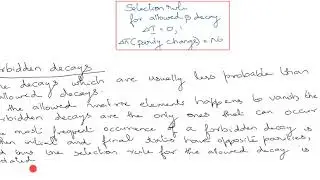 Selection rule
for allowed β decay
ΔI = 0, 1
Δπ (parity change) = No
rbidden decays
e decays which are usually less probable than
allowed decays.
the allowed matrix elements happens to vanish the
rbidden decays are the only ones that can occur
e most frequent occurrence of a forbidden decay is
hen initial and final states have opposite parities,
d thus the selection rule for the allowed decay is
olated